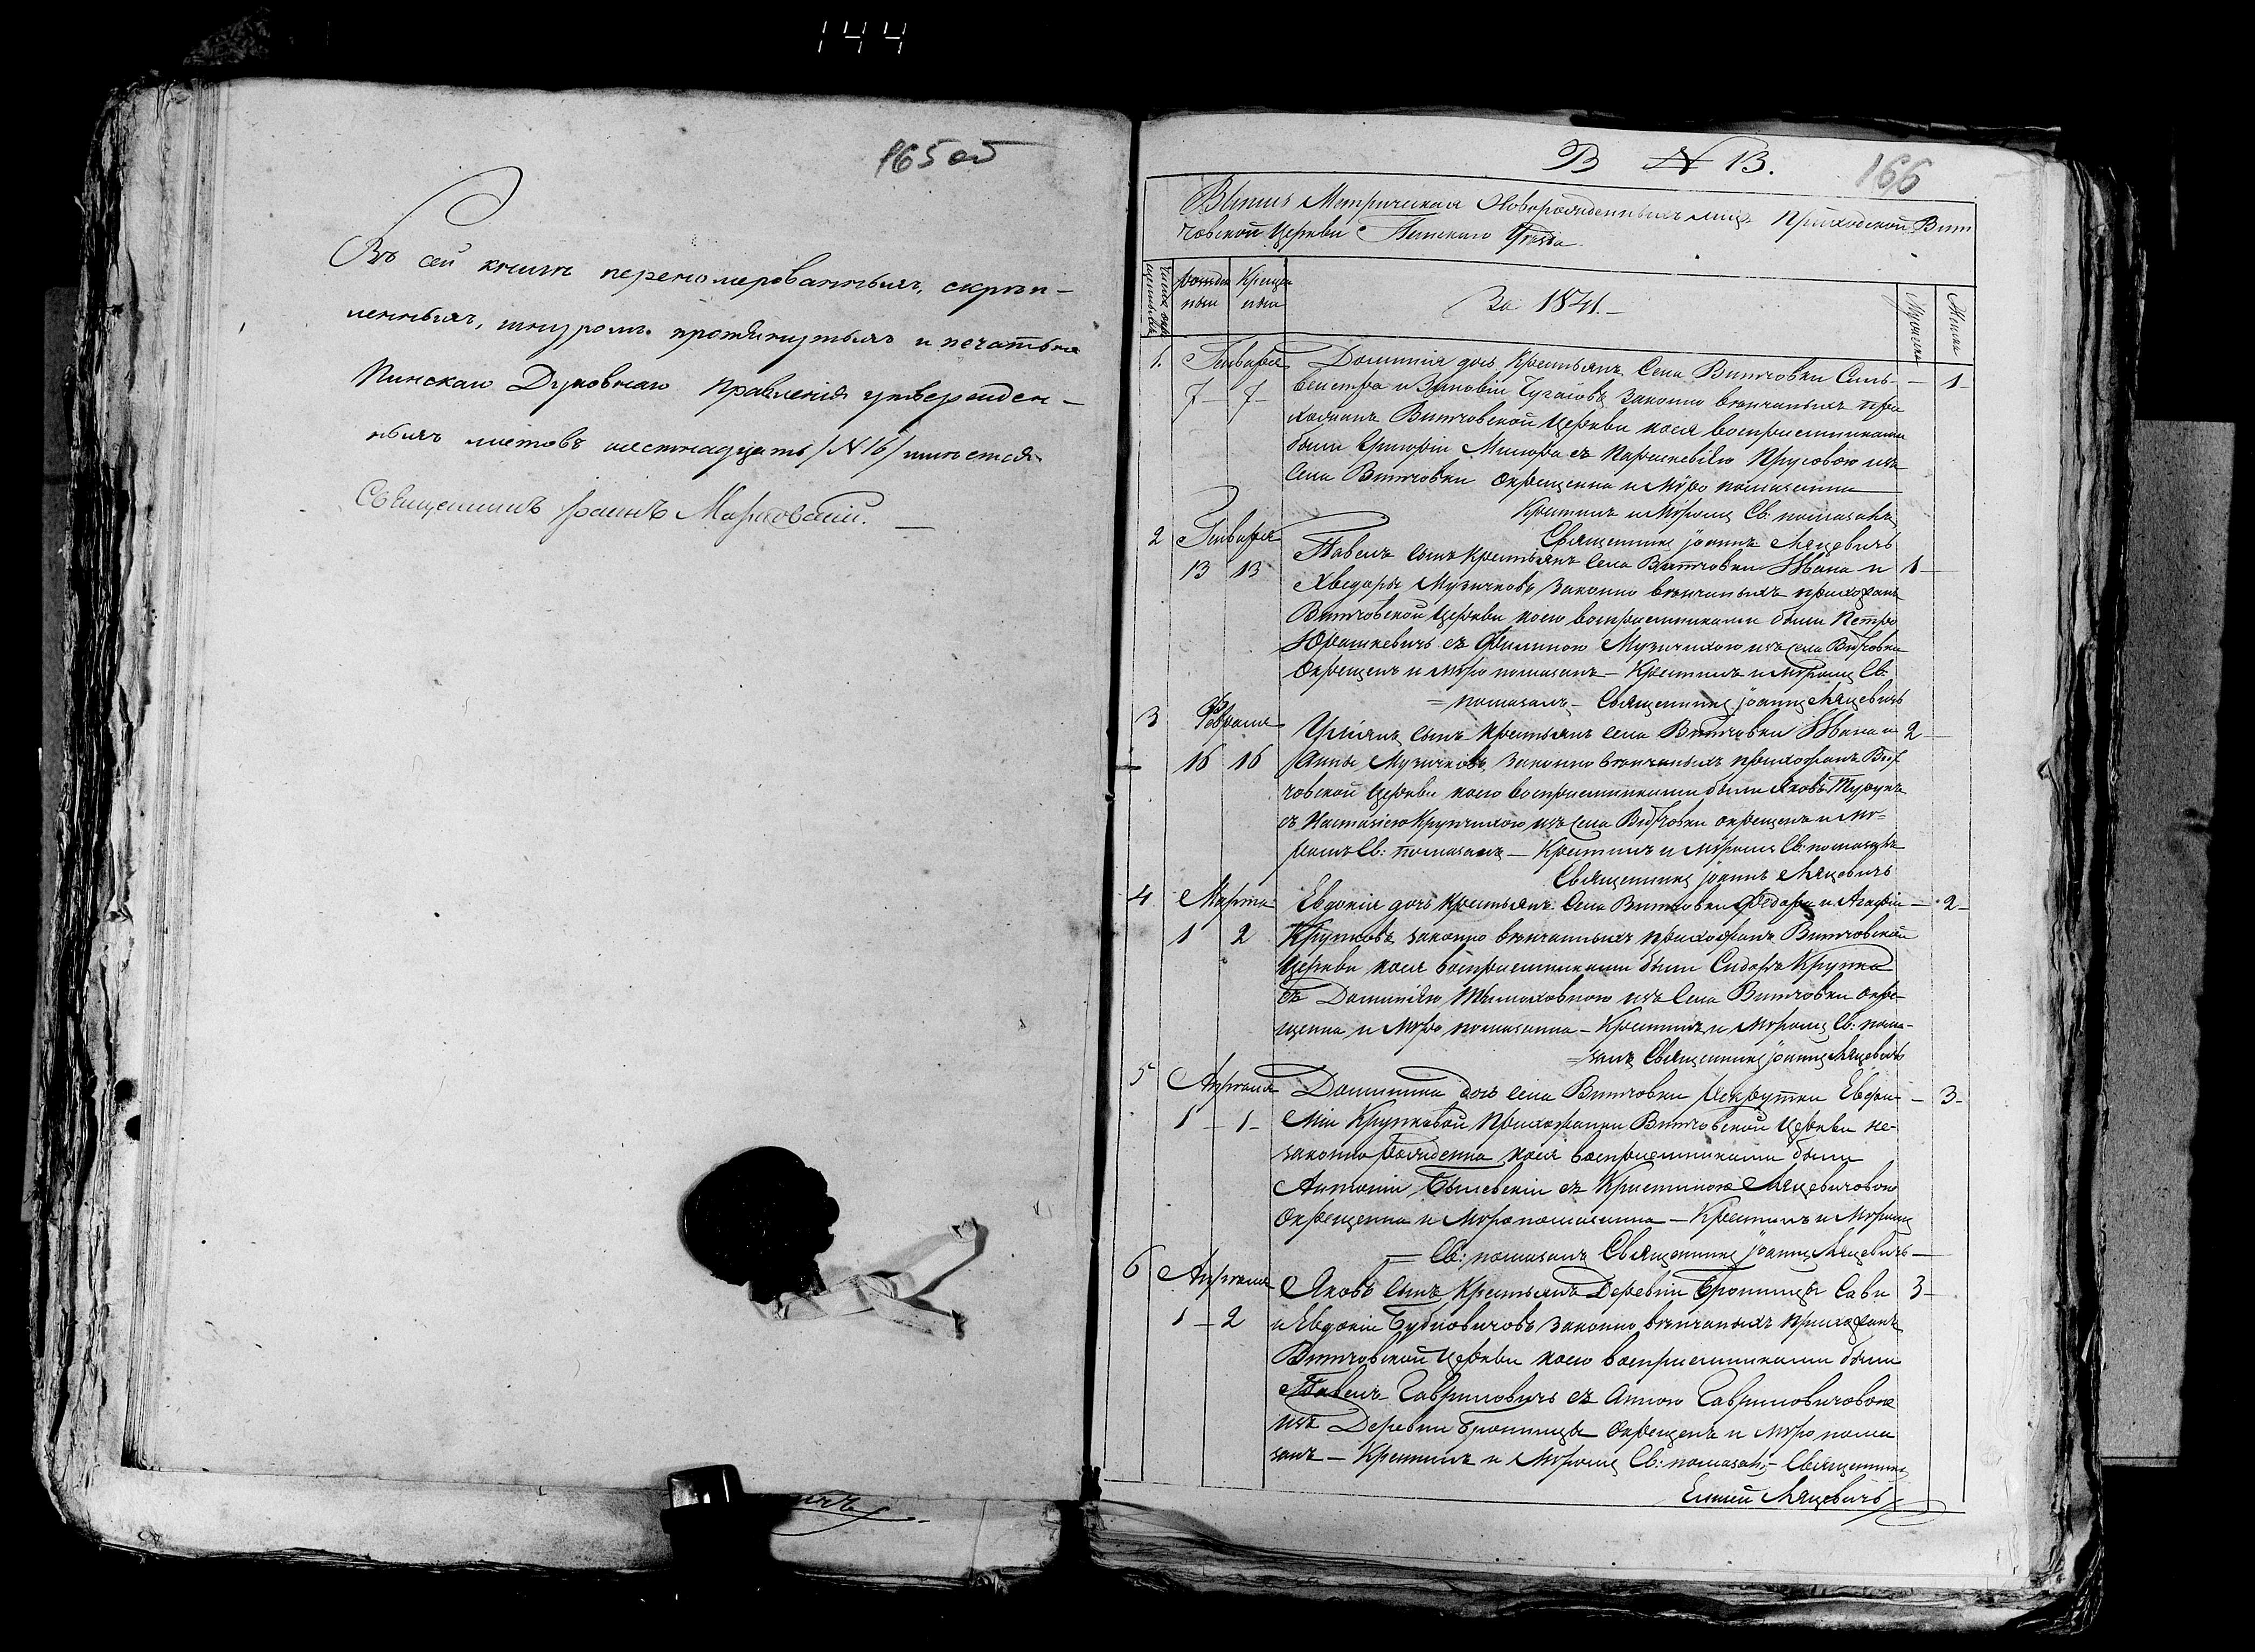 144
165 об
Въ сей книгѣ перенумерованныхъ, скрѣп-
ленныхъ, шнуромъ протянутыхъ и печатью
Пинскаго Духовнаго Правленія утвержден-
ныхъ листовъ шестнадцать /N 16/ имѣется
Священникъ Іоаннъ
В N 13.
166
Метрическая Новорожденныхъ лицъ Приходской Вит
човской Церкви Пинскаго Уѣзда
рожде
нія
Креще
нія
За 1841. –
1. Генваря Доминикія дочь Крестьянъ Села Витчовки Силь- – 1
7 – 7 – вестра и Зѣновіи законно вѣнчаныхъ при
хожанъ Витчовской Церкви коея воспріемниками
были Григорій съ Параскевіею изъ
Села Витчовки окрещенна и Мѵро помазанна
Крестилъ и Мѵромъ Св: помазалъ
Священникъ Іоаннъ Ляцевичъ
2 Генваря Павелъ сынъ Крестьянъ Села Витчовки Ивана и 1 –
13 13 Хведоры Музычковъ законно вѣнчаныхъ прихожанъ
Витчовской Церкви коего воспріемниками были Петро
Юрашкевичъ съ Музычихою изъ Села Витчовки
окрещенъ и мѵро помазанъ – Крестилъ и Мѵромъ Св:
= помазалъ – Священникъ Іоаннъ Ляцевичъ
3 Февраля сынъ Крестьянъ Села Витчовки Ивана и 2 –
16 16 Анны Музычковъ законно вѣнчаныхъ прихожанъ Вит
човской Церкви коего воспріемниками были Яковъ
съ Настасіею Крупчихою изъ Села Витчовки окрещенъ и мѵ-
ромъ Св: помазанъ – Крестилъ и Мѵромъ Св: помазалъ
Священникъ Іоаннъ Ляцевичъ
4 Марта Евдокія дочь Крестьянъ Села Витчовки Ѳедора и Агафіи – 2 –
1 2 Крупковъ законно вѣнчанныхъ прихожанъ Витчовской
Церкви коея воспріемниками были Сидоръ Крупка
съ изъ Села Витчовки окре-
щенна и Мѵро помазанна – Крестилъ и Мѵромъ Св: пома-
= залъ Священникъ Іоаннъ Ляцевичъ
5 Апрѣля дочь Села Витчовки Рекрутки Евфи – 3 –
1 – 1 – міи Крупковой Прихожанки Витчовской Церкви не-
законно рожденна коея воспріемниками были
Антоній съ Кристиною Ляцевичовою
Окрещенна и Мѵропомазанна – Крестилъ и Мѵромъ
= Св: помазалъ Священникъ Іоаннъ Ляцевичъ –
6 Апрѣля Яковъ сынъ Крестьянъ Деревни Броницы Савы 3 –
1 – 2 и Евдокіи законно вѣнчаныхъ прихожанъ
Витчовской Церкви коего воспріемниками были
Павелъ Гавриловичъ съ Анною Гавриловичовою
изъ Деревни Броницы окрещенъ и мѵро пома
занъ – Крестилъ и Мѵромъ Св: помазалъ – Священникъ
Ляцевичъ